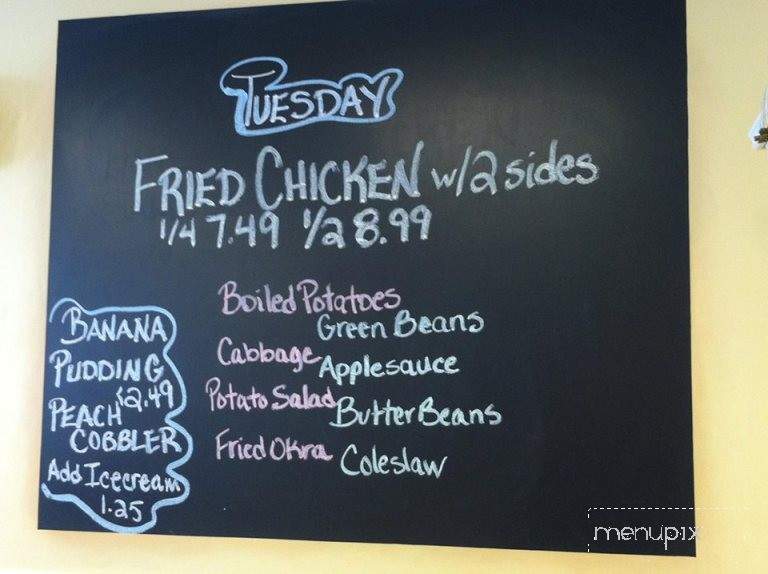 TUESDAY
FRIED CHICKEN w/2 sides
1/4 7.49 1/2 8.99
Boiled Potatoes
Green Beans
Cabbage
Applesauce
Potato Salad
Butter Beans
Fried Okra
Coleslaw
BANANA
PUDDING
$2.49
PEACH
COBBLER
Add Icecream
1.25
menupix